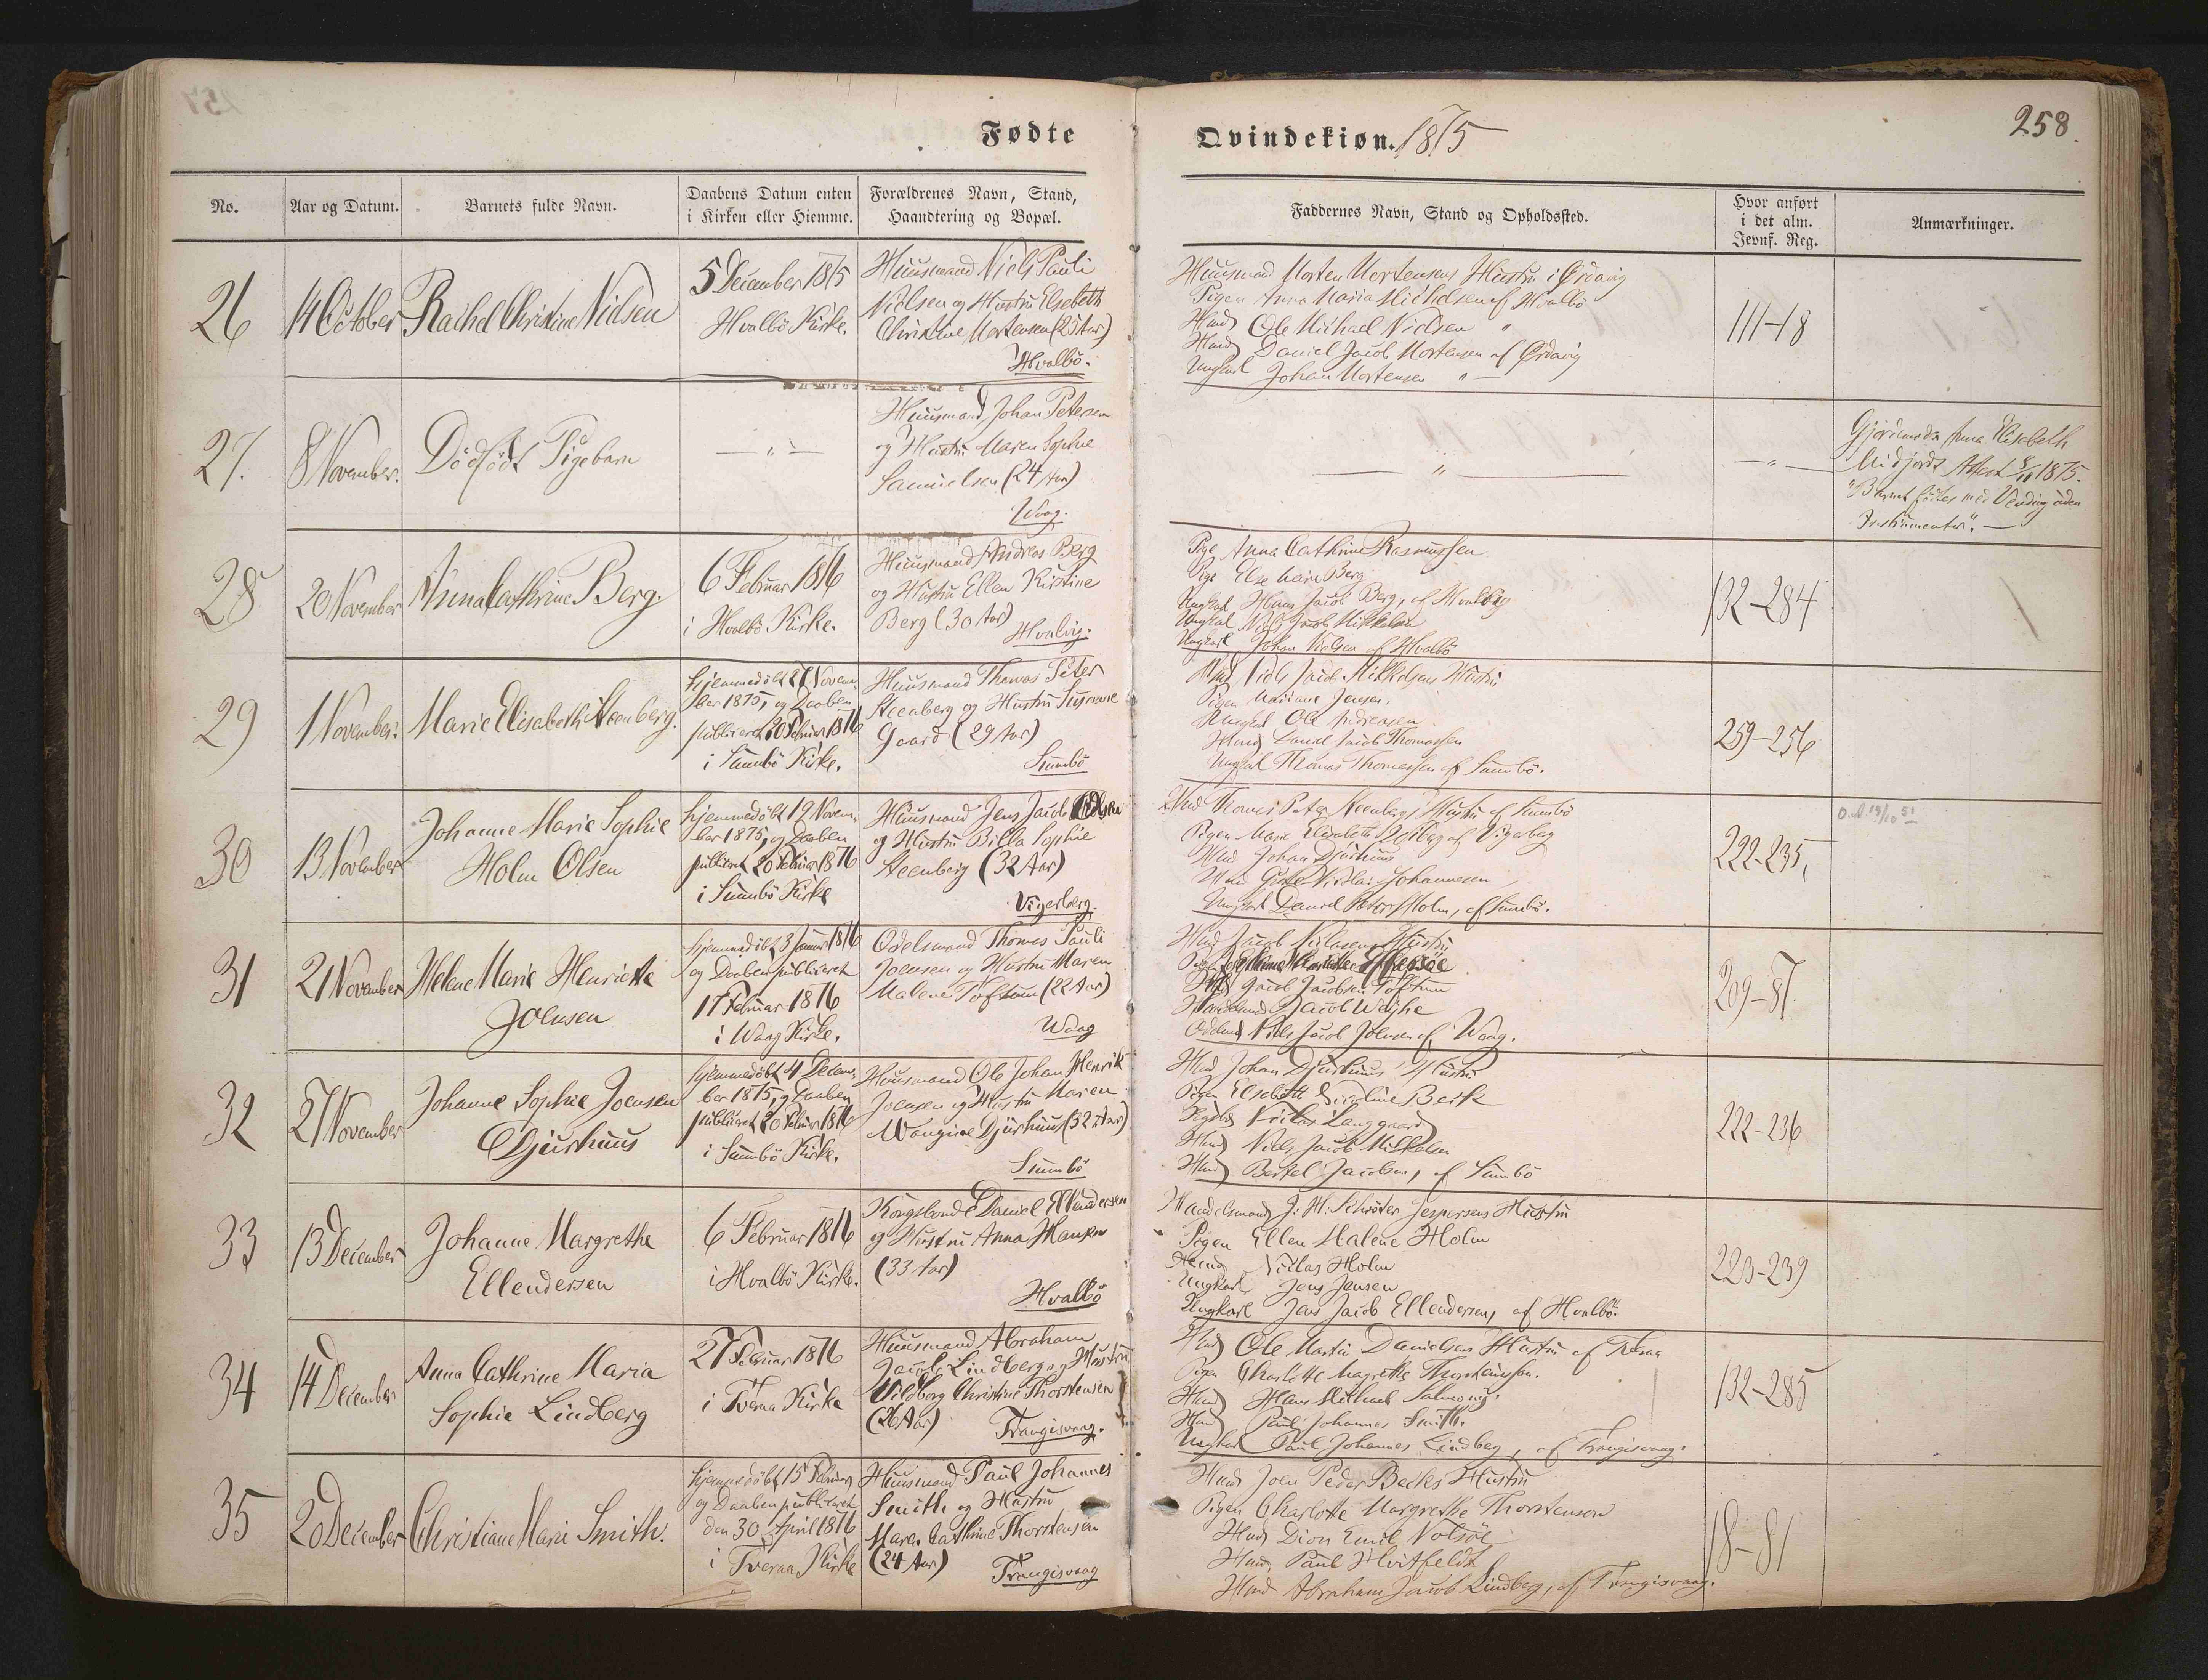 258
Fødte
Qvindekiøn. 1875
No.
Aar og Datum.
Barnets fulde Navn.
Daabens Datum enten
i Kirken eller Hiemme.
Forældrenes Navn, Stand,
Haandtering og Bopæl.
Faddernes Navn, Stand og Opholdssted.
Hvor anført
i det alm.
Jevnf. Reg.
Anmærkninger.
26
14 October
Rachel Christine Nielsen
5 December 1875
Hvalbö Kirke.
Huusmand Niels Pauli
Nielsen og Hustru Elsebeth
Christine Mortensen
Hvalbö.
Huusmand Morten Mortensens Hustru i Ördavig
Pigen Anna Maria Michelsen af Hvalbö
Hmd Ole Michael Nielsen "
Hmd Daniel Jacob Mortensen af Ördavig
Ungkarl Johan Mortensen "
111-18
27.
8 November.
Dödfödt Pigebarn
— " —
Huusmand Johan Petersen
og Hustru Maren Sophie
Samuelsen (24 Aar)
Waag.
— " —
— " —
Gjordemoder Anna Elisabeth
Midjords Attest 8/11 1875.
"Barnet födtes med Vending uden
Instrumenter". —
28
20 November
Anna Cathrine Berg.
6 Februar 1876
i Hvalbö Kirke.
Huusmand Andreas Berg
og Hustru Ellen Kirstine
Berg (30 Aar)
Hvalvig.
Pige Anna Cathrine Rasmussen
Pige Else Marie Berg
Ungkarl Hans Jacob Berg, af Hvalvig
Ungkarl Niels Jacob Mikkelsen
Ungkarl Johan Nielsen af Hvalbö
132-284
29
1 November.
Marie Elisabeth Steenberg.
Hjemmedöbt 27 Novem-
ber 1875, og Daaben
publiceret 20 Februar 1876
i Sumbö Kirke.
Huusmand Thomas Peter
Steenberg og Hustru Susanne
Gaard (29 Aar)
Sumbö
Hmd Niels Jacob Mikkelsens Hustru
Pigen Mariane Jensen.
Ungkarl Ole Andreasen
Hmd Daniel Jacob Thomassen
Ungkarl Thomas Thomassen af Sumbö.
259-256
30
13 November
Johanne Marie Sophie
Holm Olsen
Hjemmedöbt 19 Novem-
ber 1875, og Daaben
publiceret 20 Februar 1876
i Sumbö Kirke
Huusmand Jens Jacob Olsen
og Hustru Billa Sophie
Steenberg (32 Aar)
Vigerberg.
Hmd Thomas Peter Steenbergs Hustru af Sumbö
Pigen Marie Elisabeth af Vigerberg
Hmd Johan Djurhuus
Hmd Nicolai Johannesen
Ungkarl Daniel Peter Holm, af Sumbö.
222-235,
31
21 November
Helene Marie Henriette
Joensen
Hjemmedöbt 3 Januar 1876
og Daaben publiceret
17 Februar 1876
i Waag Kirke.
Odelsmand Thomas Pauli
Joensen og Hustru Maren
Malene Toftum (22 Aar)
Waag
Hmd Jacob Hustru
Hmd Jacob Jacobsen Toftum
Jacob Weihe
Odelsmd Niels Jacob Joensen af Waag.
209-87.
32
27 November
Johanne Sophie Joensen
Djurhuus
Hjemmedöbt 4 Decem-
ber 1875, og Daaben
publiceret 20 Februar 1876
i Sumbö Kirke.
Huusmand Ole Johan Henrik
Joensen og Hustru Maren
Djurhuus (32 Aar)
Sumbö
Hmd Johan Djurhuus' Hustru
Pigen Elsebeth Beck
Hmd Niels Jacob Mikkelsen
Hmd Bertel Jacobsen, af Sumbö
222-236
33
13 December
Johanne Margrethe
Ellendersen
6 Februar 1876
i Hvalbö Kirke.
Kongsbonde Daniel Ellendersen
og Hustru Anna Hansen
(33 Aar)
Hvalbö
Handelsmand J. H. Schröter Jespersens Hustru
Pigen Ellen Malene Holm
Hmd Niclas Holm
Ungkarl Jens Jensen
Ungkarl Jens Jacob Ellendersen, af Hvalbö.
223-239
34
14 December
Anna Cathrine Maria
Sophie Lindberg
27 Februar 1876
i Tveraa Kirke
Huusmand Abraham
Jacob Lindberg og Hustru
Christine Thorstensen
(26 Aar)
Trangisvaag.
Hmd Ole Martin Danielsens Hustru af Tveraa
Pigen Charlotte Magrethe Thorstensen.
Hmd Hans Michael
Hmd Poul Johannes Smith.
Ungkarl Poul Johannes Lindberg, af Trangisvaag.
132-285
35
20 December
Christiane Marie Smith.
Hjemmedöbt 15 Februar
og Daaben publiceret
den 30 April 1876
i Tveraa Kirke
Huusmand Paul Johannes
Smith og Hustru
Maren Cathrine Thorstensen
(24 Aar)
Trangisvaag
Hmd Joen Peder Becks Hustru
Pigen Charlotte Margrethe Thorstensen
Hmd Dion Emil Nolsöe
Hmd Paul Hvitfeldt
Hmd Abraham Jacob Lindberg, af Trangisvaag.
18-81